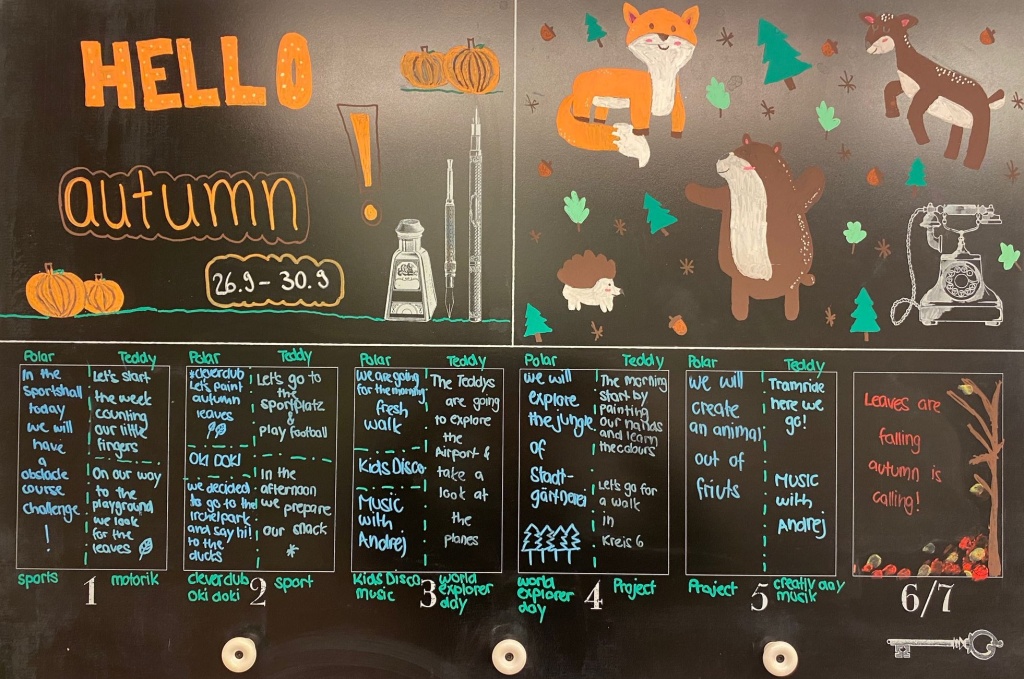 HELLO
autumn
!
26.9 - 30.9
Polar
In the
sportshall
today
we will
have
a
obstacle
course
challenge
!
sports
Teddy
Let's start
the week
counting
our little
fingers
on our way
to the
playground
we look
for the
leaves
motorik
1
Polar
*cleverclub
Let's paint
autumn
leaves
OKI DOKI
we decided
to go to the
Irchelpark
and say hi!
to the
ducks
cleverclub
Oki doki
Teddy
Let's go to
the
sportplatz
&
play football
In the
afternoon
we prepare
our snack
*
sport
2
Polar
we are going
for the morning
fresh
walk
Kids Disco
Music
with
Andrej
Kids Disco
music
Teddy
The Teddys
are going
to explore
the
Airport &
take a
look at
the
planes
world
explorer
day
3
Polar
we will
explore
the jungle
of
Stadt-
gärtnerei
world
explorer
day
Teddy
The morning
start by
painting
our hands
and learn
the colours
Let's go for
a walk
in
Kreis 6
Project
4
Polar
we will
create
an animal
out of
friuts
Project
Teddy
Tramride
here we
go!
Music
with
Andrej
musik
5
Leaves are
falling
autumn is
calling!
6/7